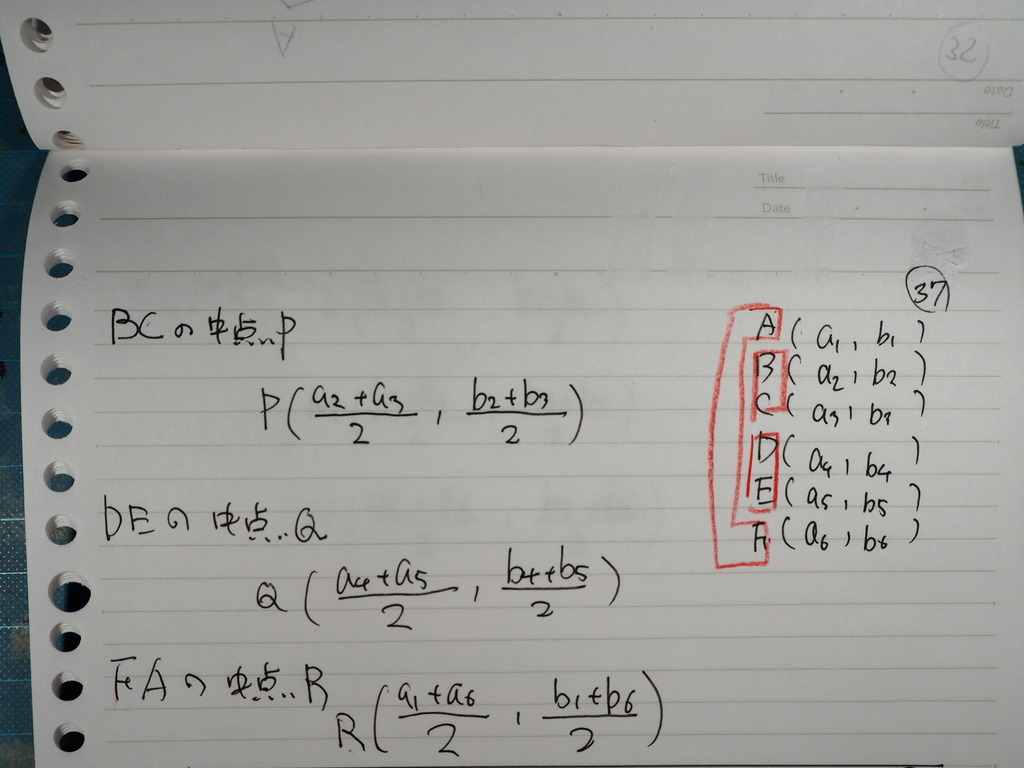 32
Date
Title
Title
Date
37
BCの中点‥P
P(a₂+a₃/2, b₂+b₃/2)
DEの中点‥Q
Q(a₄+a₅/2, b₄+b₅/2)
FAの中点‥R
R(a₁+a₆/2, b₁+b₆/2)
A(a₁, b₁)
B(a₂, b₂)
C(a₃, b₃)
D(a₄, b₄)
E(a₅, b₅)
F(a₆, b₆)